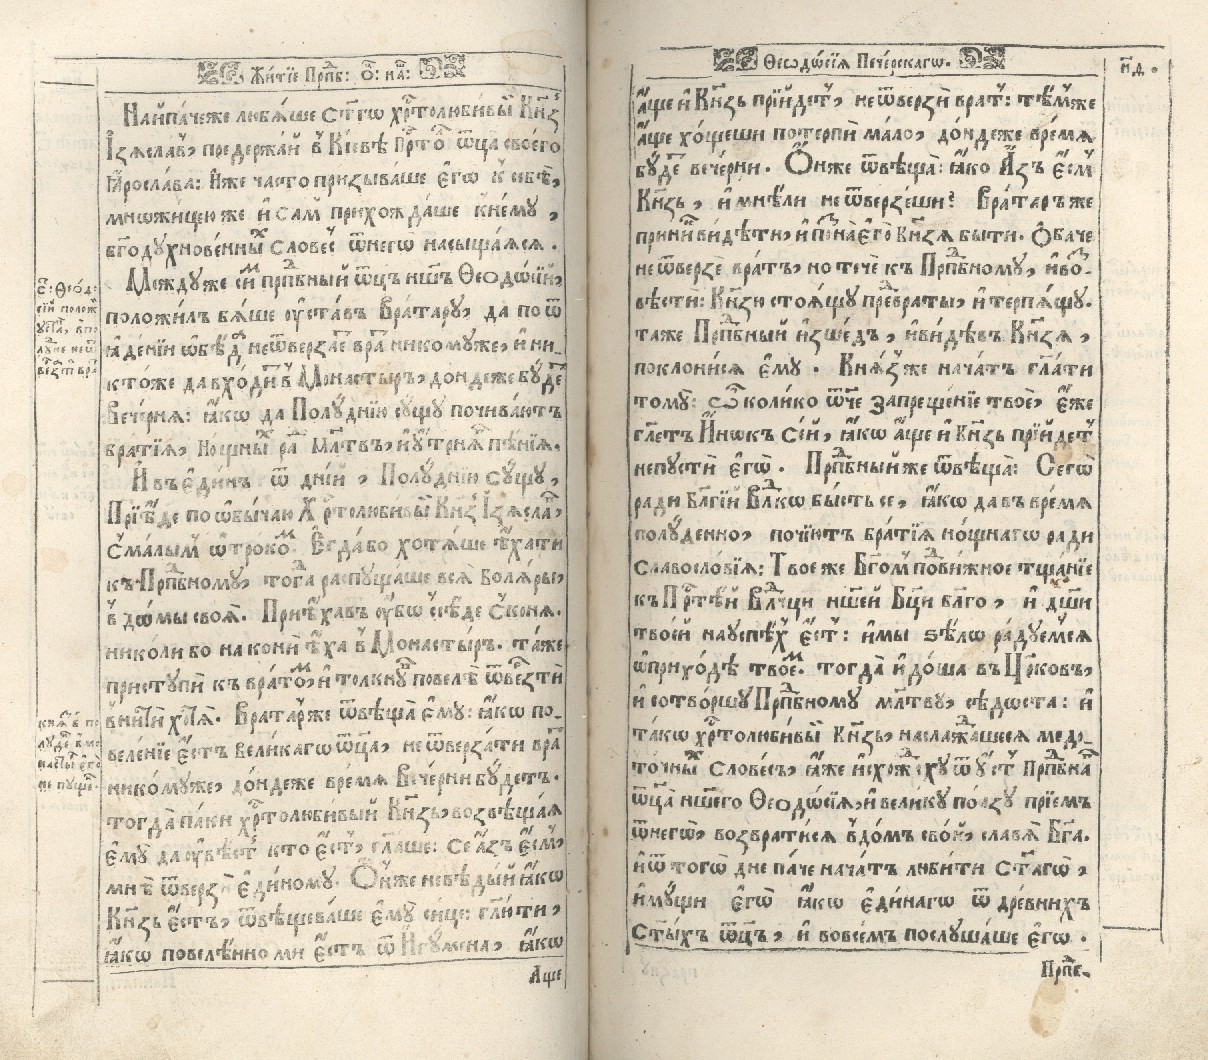 Житїе Прпⷣб: Ѻ҃: на́ш:
Найпа́чеже любѧ́ше Ст҃гѡ хрⷭ҇толюби́вый Кн҃зь
Їзѧсла́въ, предержа́й в Кі́евѣ Прⷭ҇то́лъ ѿца̀ своего̀
Ꙗросла́ва: И҆́же часто призыва́ше є҆го̀ к себѣ̀,
мно́жицею же и҆ са́мъ прихожда́ше к немꙋ̀,
бг҃одꙋхнове́нныхъ слове́съ ѿнегѡ̀ насыща́ѧсѧ.
Междꙋ же си́мъ прпⷣбный ѿц҃ъ нш҃ъ Ѳеодо́сїй,
положи́лъ бѧ́ше ᲂу҆ста́въ Вратарꙋ̀, да по ѿ
ꙗ҆де́нїи ѡ҆бѣ́да неѿверза́етъ вра́тъ никомꙋже, и҆ ни_
кто́же да вхо́дитъ в Монасты́ръ, дондеже бꙋ́детъ
Вече́рнѧ: ꙗ҆́кѡ да Полꙋ́днїю сꙋ́щꙋ почива́ютъ
бра́тїѧ, нощны́хъ ра́ди мл҃твъ, и҆ ᲂу҆́трнѧгѡ пѣ́нїѧ.
И҆ въ є҆ди́нъ ѿ дні́й, Полꙋ́днїю сꙋ́щꙋ,
Прїи́де по ѡ҆бы́чаю Хрⷭ҇толюби́вый Кн҃зь Їзѧсла́въ,
с ма́лымъ ѻ҆́трокомъ. Є҆гда́ бо хотѧ́ше ѣ҆́хати
къ Прпⷣбномꙋ, тогда̀ распꙋща́ше всѧ̀ Болѧ́ры,
в до́мы своѧ̀. Прїѣ́хавъ ᲂу҆́бѡ ссѣ́де с конѧ̀.
николи́ бо на кони̑ ѣ҆́ха в Монасты́ръ. та́же
пристꙋпѝ къ врато́мъ, и҆ толкнꙋ́въ повелѣ̀ ѿве́рзти
вни́ти хотѧ̀. Врата́рже ѿвѣща̀ є҆мꙋ̀: ꙗ҆́кѡ по_
веле́нїе є҆́стъ вели́кагѡ ѿца̀, не ѿверза́ти вра́тъ
никомꙋ́же, до́ндеже вре́мѧ Вече́рни бꙋ́детъ.
тогда̀ па́ки хрⷭ҇толюби́вый Кн҃зь, возвѣща́ѧ
є҆мꙋ̀ да ᲂу҆вѣ́стъ кто̀ є҆́стъ, гл҃аше: Се а҆́зъ є҆́смъ,
мнѣ̀ ѿверзѝ є҆ди́номꙋ. Ѻ҆́нже невѣ́дый ꙗ҆́кѡ
Кн҃зь є҆́стъ, ѿвѣщева́ше є҆мꙋ̀ си́це: гл҃ти,
ꙗ҆́кѡ повелѣ́нно ми є҆́стъ ѿ И҆гꙋ́мена, ꙗ҆́кѡ
Аще
Ѻ҃: Ѳео́до_
сїй положѝ
ᲂу҆ста́, в по
лꙋ́дне не ѿ
ве́рзти вра́
кнѧ́зѧ в по
лꙋ́дне в мо
насты́ръ є҆го̀
не пꙋще́но.
Ѳеодо́сїѧ Пече́рскагѡ.
н҃д.
а҆́ще и҆ Кн҃зь прїи́детъ, не ѿверзѝ вра́тъ: тѣ́мже
а҆́ще хо́щеши потерпѝ ма́ло, до́ндеже вре́мѧ
бꙋ́детъ вече́рни. Ѻ҆́нже ѿвѣща̀: ꙗ҆́ко А҆́зъ є҆́смъ
Кн҃зь, и҆ мнѣ́ли не ѿве́рзеши? Вратаръ же
прини́че ви́дѣти, и҆ позна̀ є҆го̀ Кн҃зѧ бы́ти. Ѻ҆ба́че
не ѿверзѐ вра́тъ, но течѐ къ Прпⷣбномꙋ, и҆ воз_
вѣстѝ: Кн҃зю стоѧ́щꙋ пред враты̀, и҆ терпѧ́щꙋ.
та́же Прпⷣбный и҆зше́дъ, и҆ ви́дѣвъ Кн҃зѧ,
поклони́сѧ є҆мꙋ̀. Кнѧ́зже нача́тъ гл҃ати
томꙋ̀: Ѽ коли́ко ѿч҃е запреще́нїе твоѐ, є҆́же
гл҃етъ И҆́нокъ се́й, ꙗ҆́кѡ а҆́ще и҆ Кн҃зь прїи́детъ
непꙋстѝ є҆го̀. Прпⷣбный же ѿвѣща̀: Сегѡ̀
ради бл҃гїй Влⷣкѡ бы́сть се, ꙗ҆́кѡ да въ вре́мѧ
полꙋ́денно, почі́ютъ бра́тїѧ но́щнагѡ ра́ди
славосло́вїѧ: Твое́ же Бг҃омъ подви́жное тща́нїе
къ Прⷭ҇тѣ́й Влⷣчци нш҃ей Бц҃и бл҃го, и҆ дш҃и
твое́й на ᲂу҆спѣ́хъ є҆́стъ: и҆ мы̀ ѕѣ́лѡ ра́дꙋемсѧ
ѡ҆ прихо́дѣ твое́мъ. тогда̀ и҆до́ша въ Цр҃ковъ,
и҆ сотво́ршꙋ Прпⷣбномꙋ мл҃твꙋ, сѣдо́ста: и҆
та́кѡ хрⷭ҇толюби́вый Кн҃зь, наслажда́шесѧ медо_
то́чныхъ слове́съ, ꙗ҆́же и҆схожда́хꙋ ѿ ᲂу҆́стъ Прпⷣбнагѡ
ѿца̀ нш҃егѡ Ѳеодо́сїѧ, и҆ вели́кꙋ по́лзꙋ прїе́мъ
ѿнегѡ̀, возврати́сѧ в до́мъ сво́й, сла́вѧ Бг҃а.
и҆ ѿ тогѡ̀ дне па́че нача́тъ люби́ти Ст҃агѡ,
и҆мꙋ́щи є҆го̀ ꙗ҆́кѡ є҆ди́нагѡ ѿ дре́внихъ
Ст҃ы́хъ ѿц҃ъ, и҆ во все́мъ послꙋша́ше є҆гѡ̀.
Прпⷣб_